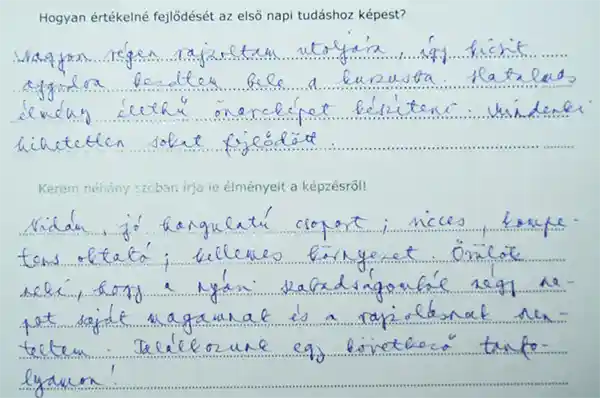 Hogyan értékelné fejlődését az első napi tudáshoz képest?
Nagyon régen rajzoltam utoljára, így kicsit
aggódva kezdtem bele a kurzusba. Hatalmas
élmény élethű önarcképet készíteni. Mindenki
hihetetlen sokat fejlődött.
Kérem néhány szóban írja le élményeit a képzésről!
Vidám, jó hangulatú csoport; vicces, kompe-
tens oktató; kellemes környezet. Örülök
neki, hogy a nyári szabadságomból négy na-
pot saját magamnak és a rajzolásnak szen-
teltem. Találkozunk egy következő tanfo-
lyamon!